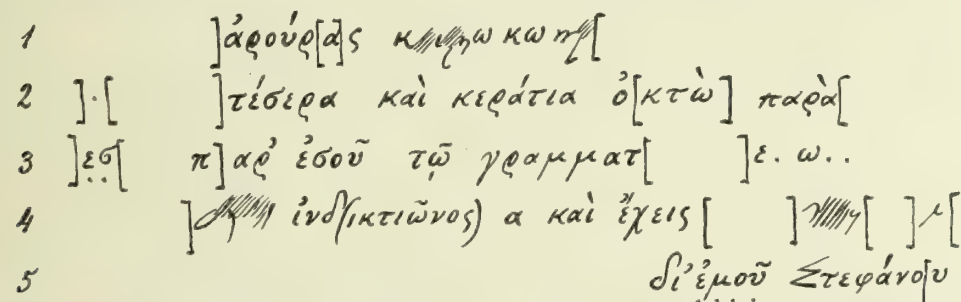 1 ]ἀρούρ[α]ς κ
2 ].[ ]τέσερα καὶ κεράτια ὀ[κτὼ] παρὰ[
3 ]εσ[ π]αρ' ἐσοῦ τῷ γραμματ[ ]ε. ω..
4 ] ἰνδ(ικτιῶνος) α καὶ ἔχεις [ ] [ ]μ[
5 δι' ἐμοῦ Στεφάνο[υ